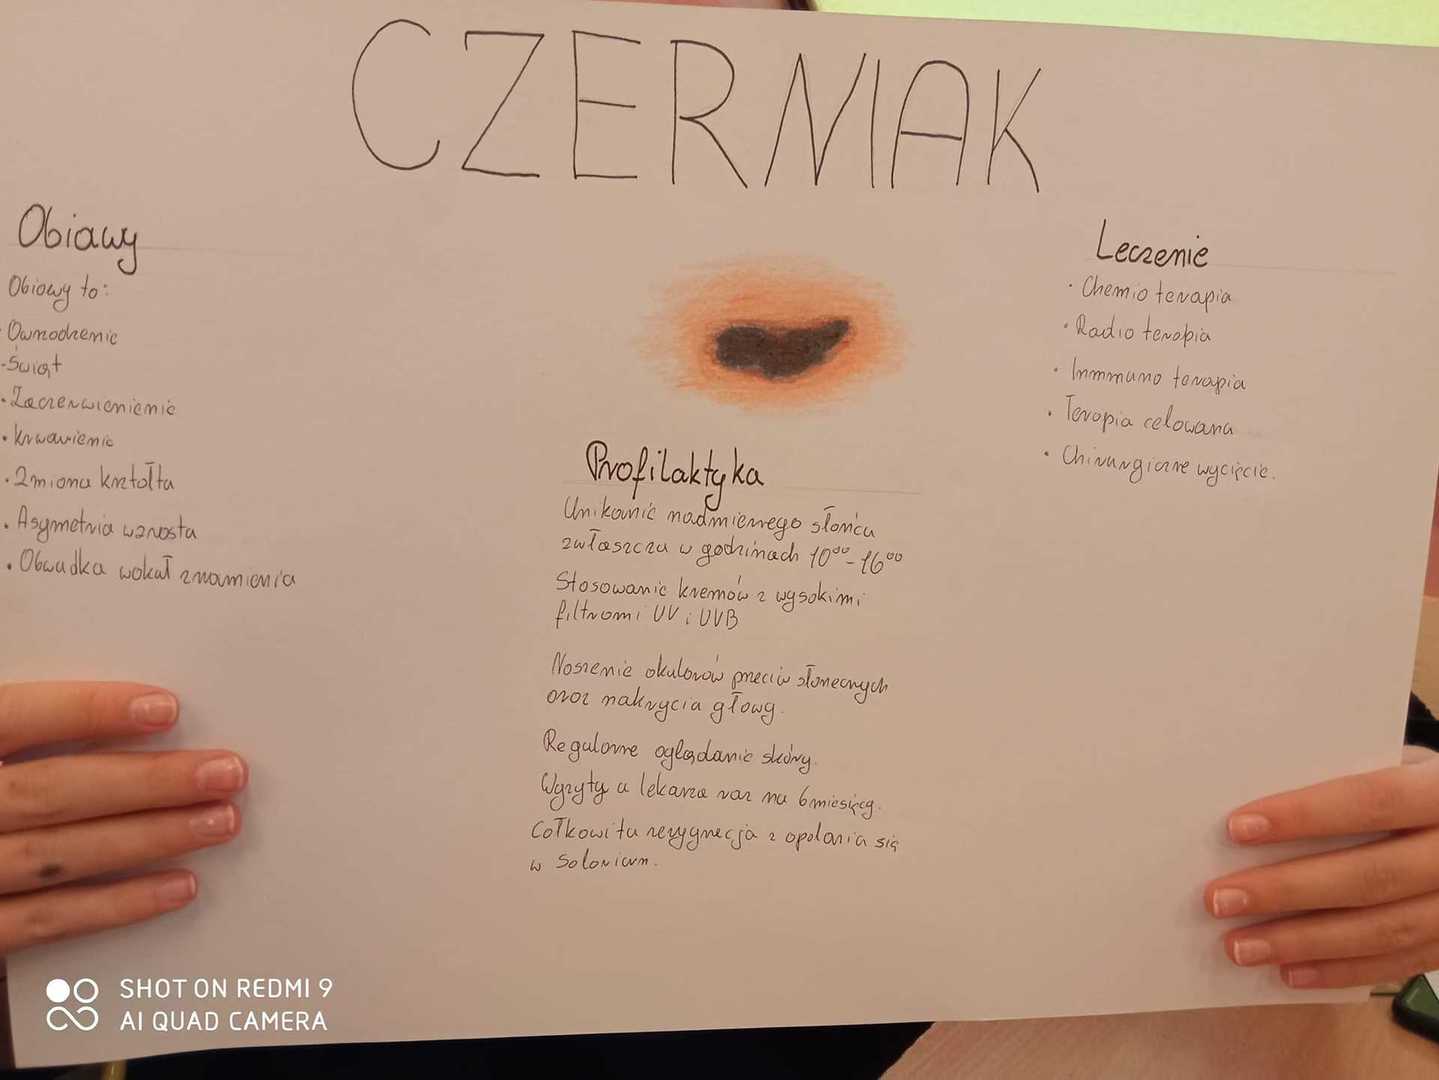 CZERNIAK
Obiawy
Obiawy to:
· Owrzodzenie
- Świąt
· Zaczerwienienie
· krwawienie
· Zmiana kształtu
· Asymetria wzrostu
· Obwudka wokuł znamienia
Profilaktyka
Unikanie nadmiernego słońca
zwłaszcza w godzinach 10⁰⁰ - 16⁰⁰
Stosowanie kremów z wysokimi
filtrami UV i UVB
Noszenie okularów przeciw słonecznych
oraz nakrycia głowy.
Regularne oglądanie skóry.
Wyzyty u lekarza raz na 6 miesięcy.
Całkowita rezygnacja z opalania się
w Solarium.
Leczenie
· Chemio terapia
· Radio terapia
· Inmmuno terapia
· Terapia celowana
· Chirurgiczne wycięcie.
SHOT ON REDMI 9
AI QUAD CAMERA